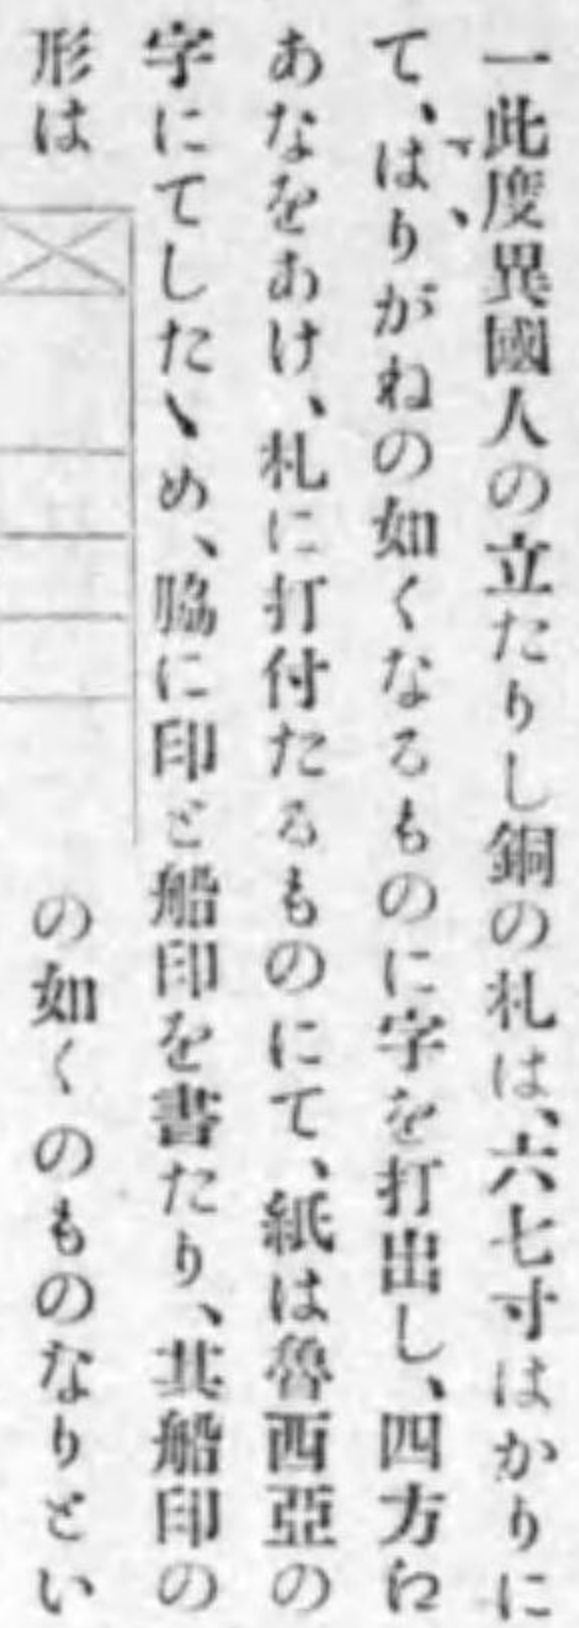 一此度異國人の立たりし銅の札は、六七寸はかりに
て、はりがねの如くなるものに字を打出し、四方に
あなをあけ、札に打付たるものにて、紙は魯西亞の
字にてしたゝめ、脇に印と船印を書たり、其船印の
形は
の如くのものなりとい